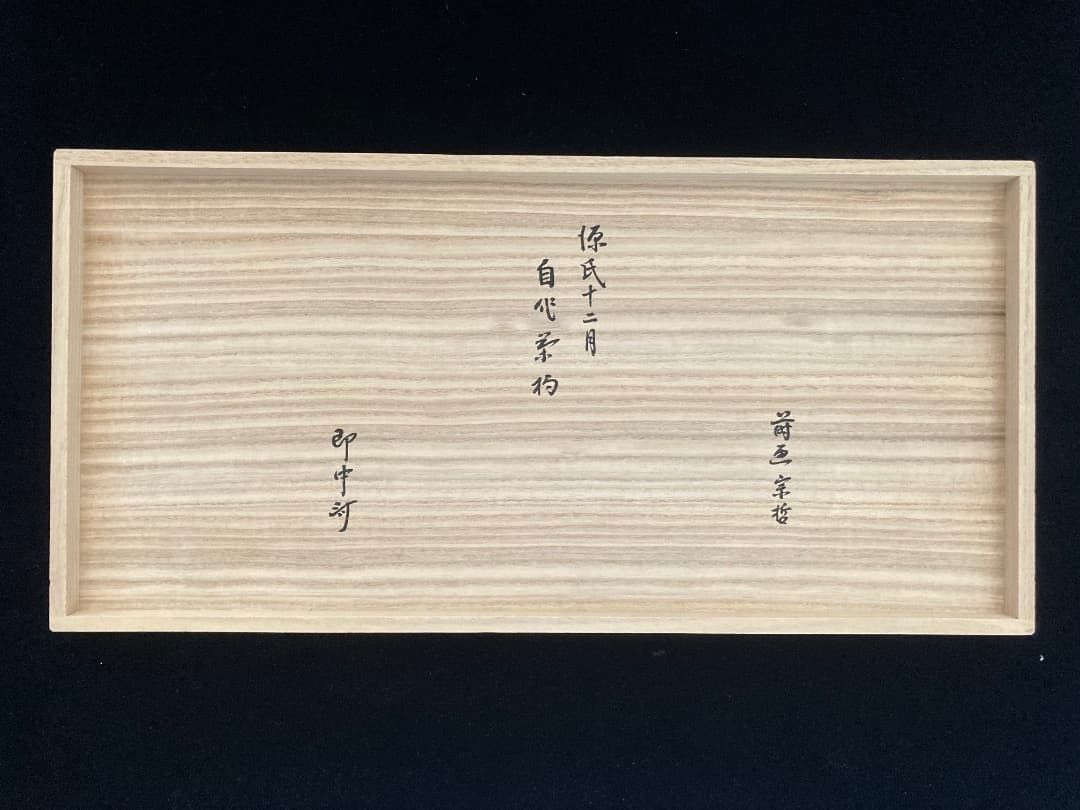 蒔画 宗哲
源氏十二月
自作茶杓
即中